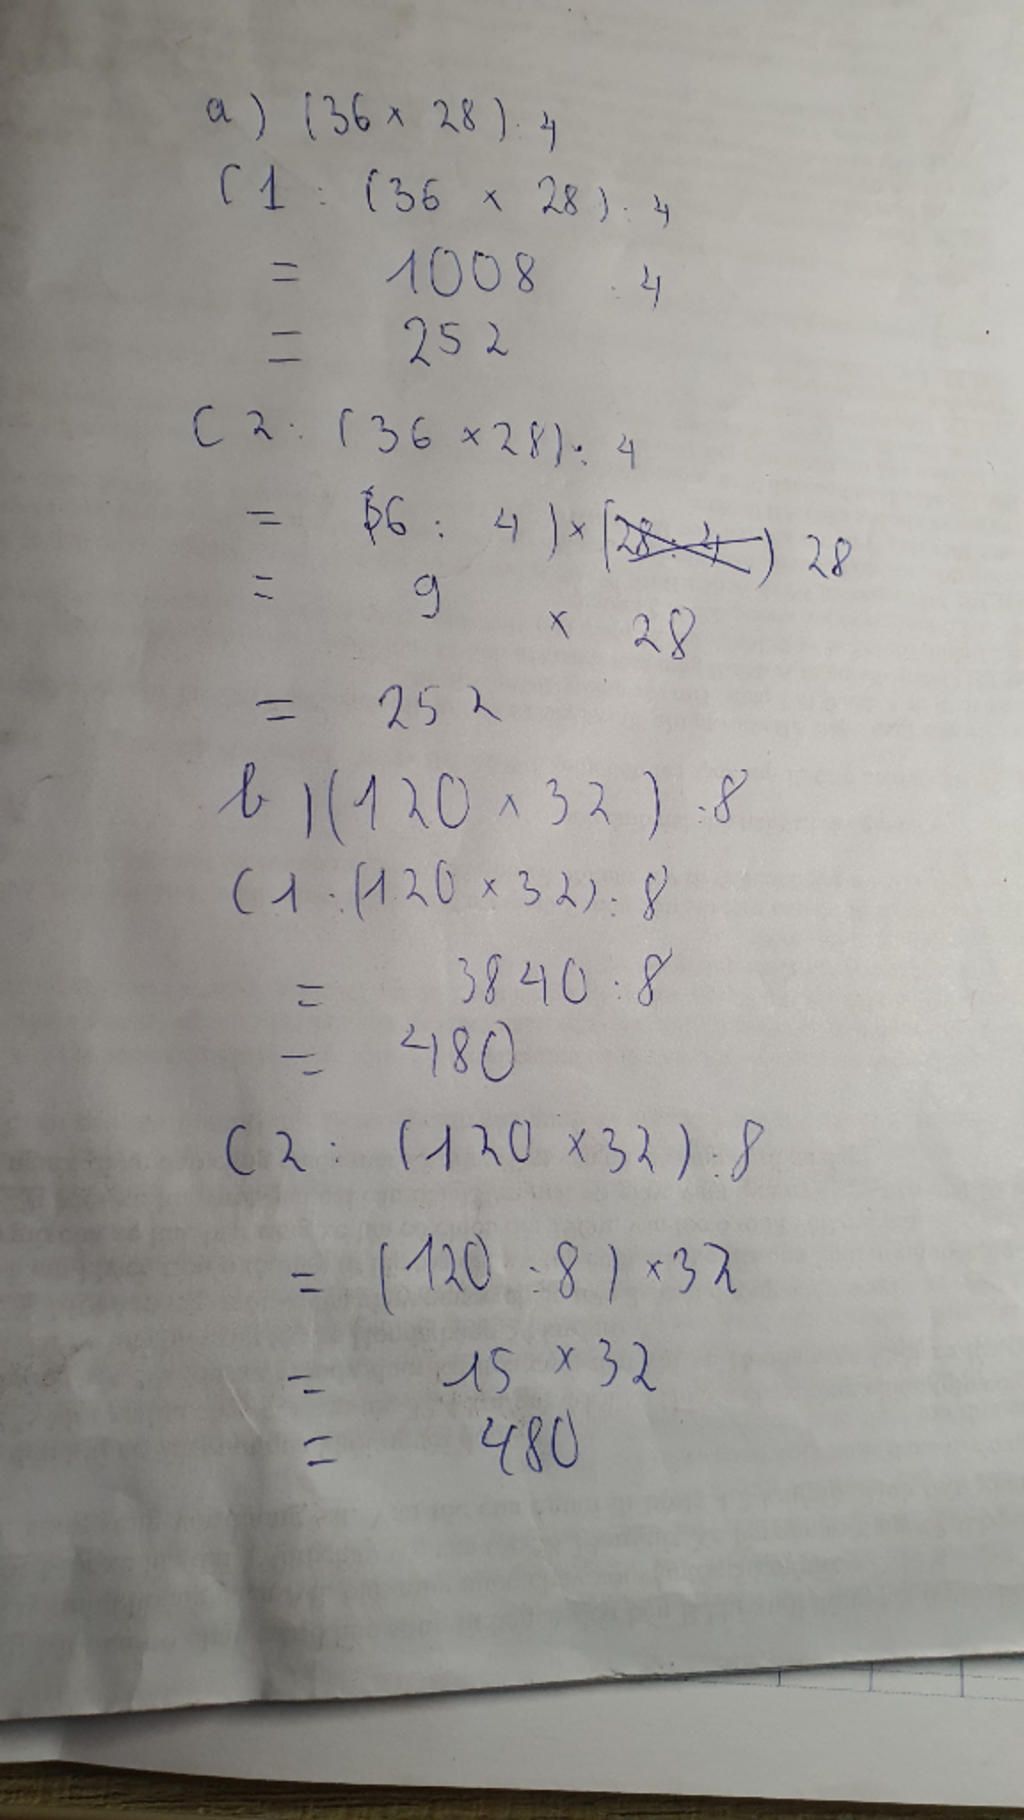 a) (36 x 28) : 4
C1 : (36 x 28) : 4
= 1008 : 4
= 252
C2 : (36 x 28) : 4
= (36 : 4) x (28 : 4) 28
= 9 x 28
= 252
b) (120 x 32) : 8
C1 : (120 x 32) : 8
= 3840 : 8
= 480
C2 : (120 x 32) : 8
= (120 : 8) x 32
= 15 x 32
= 480